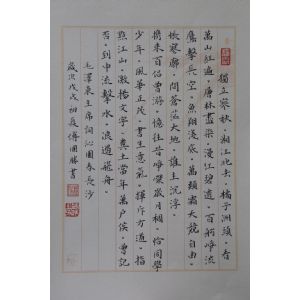 獨立寒秋·湘江北去·橘子洲頭·看
萬山紅遍·層林盡染·漫江碧透·百舸爭流
鷹擊長空·魚翔淺底·萬類霜天競自由·
悵寥廓·問蒼茫大地·誰主沉浮·
携來百侶曾遊·憶往昔崢嶸歲月稠·恰同學
少年·風華正茂·書生意氣·揮斥方遒·指
點江山·激揚文字·糞土當年萬戶侯·曾記
否·到中流擊水·浪遏飛舟·
毛澤東主席詞沁園春長沙
歲次戊戌初夏傅國勝書